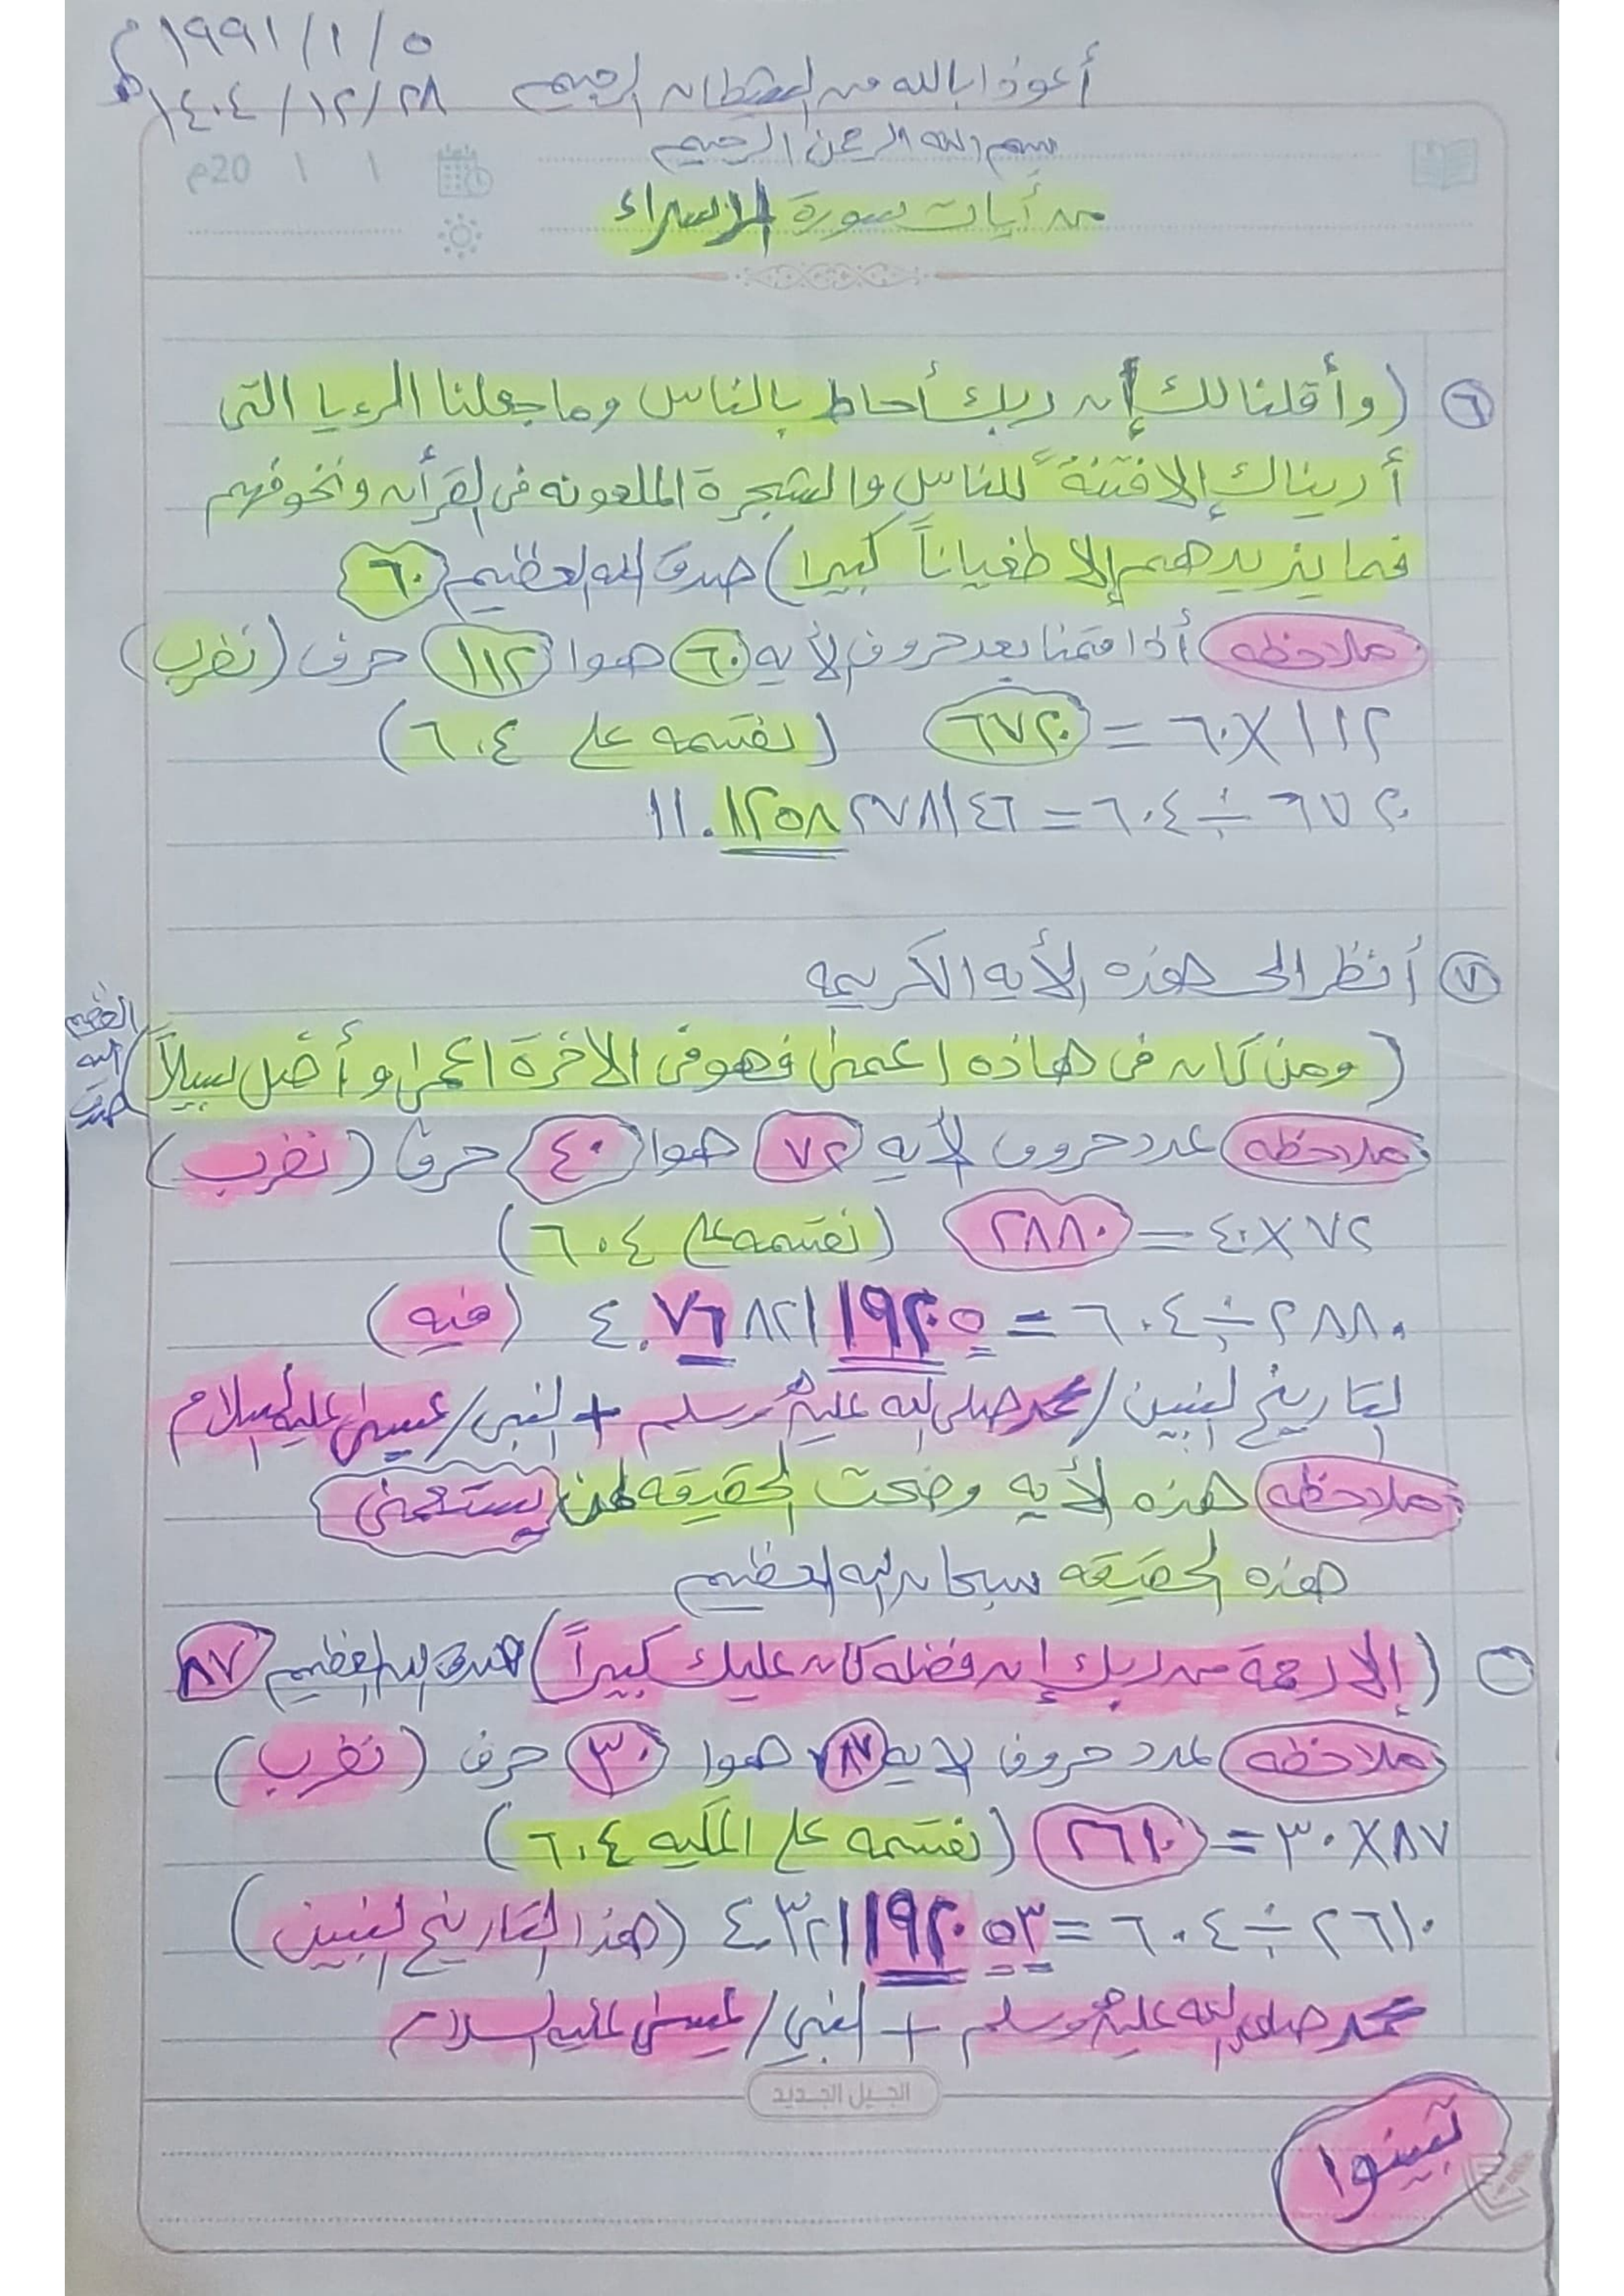 ١٩٩١/١/٥ م
أعوذا بالله من الشيطان الرجيم ١٤٠٤/١٢/٢٨ هـ
بسم الله الرحمن الرحيم
١ ١ 20م
من أيات سورة الإسراء
٦ (وأقلنا لك إن ربك أحاط بالناس وما جعلنا الرءيا التى
أريناك إلا فتنةً للناس والشجرة الملعونه فى القرأن ونخوفهم
فما يزيدهم إلا طغياناً كبيرا) صدق الله العظيم ٦٠
ملاحظه أذا قمنا بعد حروف الأيه ٦٠ هوا ١١٢ حرف (نضرب)
١١٢ × ٦٠ = ٦٧٢٠ (نقسمه على ٦٠٤)
٦٧٢٠ ÷ ٦٠٤ = ١١.١٢٥٨٢٧٨١٤٦
٧ أنظر الى هذه الأيه الكريمه
(ومن كان فى هاذه اعمى فهو فى الاخرة اعمى وأضل سبيلاً) صدق الله العظيم
ملاحظه عدد حروف الأيه ٧٢ هوا ٤٠ حرف (نضرب)
٧٢ × ٤٠ = ٢٨٨٠ (نقسمه على ٦٠٤)
٢٨٨٠ ÷ ٦٠٤ = ٤.٧٦٨٢١١٩٢٠٥ (فيه)
التاريخ لنبيين / محمد صلى الله عليه وسلم + النبى / عيسى عليه السلام
ملاحظه هذه الأيه وضحت الحقيقه لمن يستعمى
هذه الحقيقه سبحان الله العظيم
(إلا رحمة من ربك إن فضله كان عليك كبيراً) صدق الله العظيم ٨٧
ملاحظه عدد حروف الايه ٨٧ هوا ٣٠ حرف (نضرب)
٨٧ × ٣٠ = ٢٦١٠ (نقسمه على المكيه ٦٠٤)
٢٦١٠ ÷ ٦٠٤ = ٤.٣٢١١٩٢٠٥٣ (هذا التاريخ لنبيين)
محمد صلى الله عليه وسلم + النبي / عيسى عليه السلام
الجيل الجديد
تبينوا